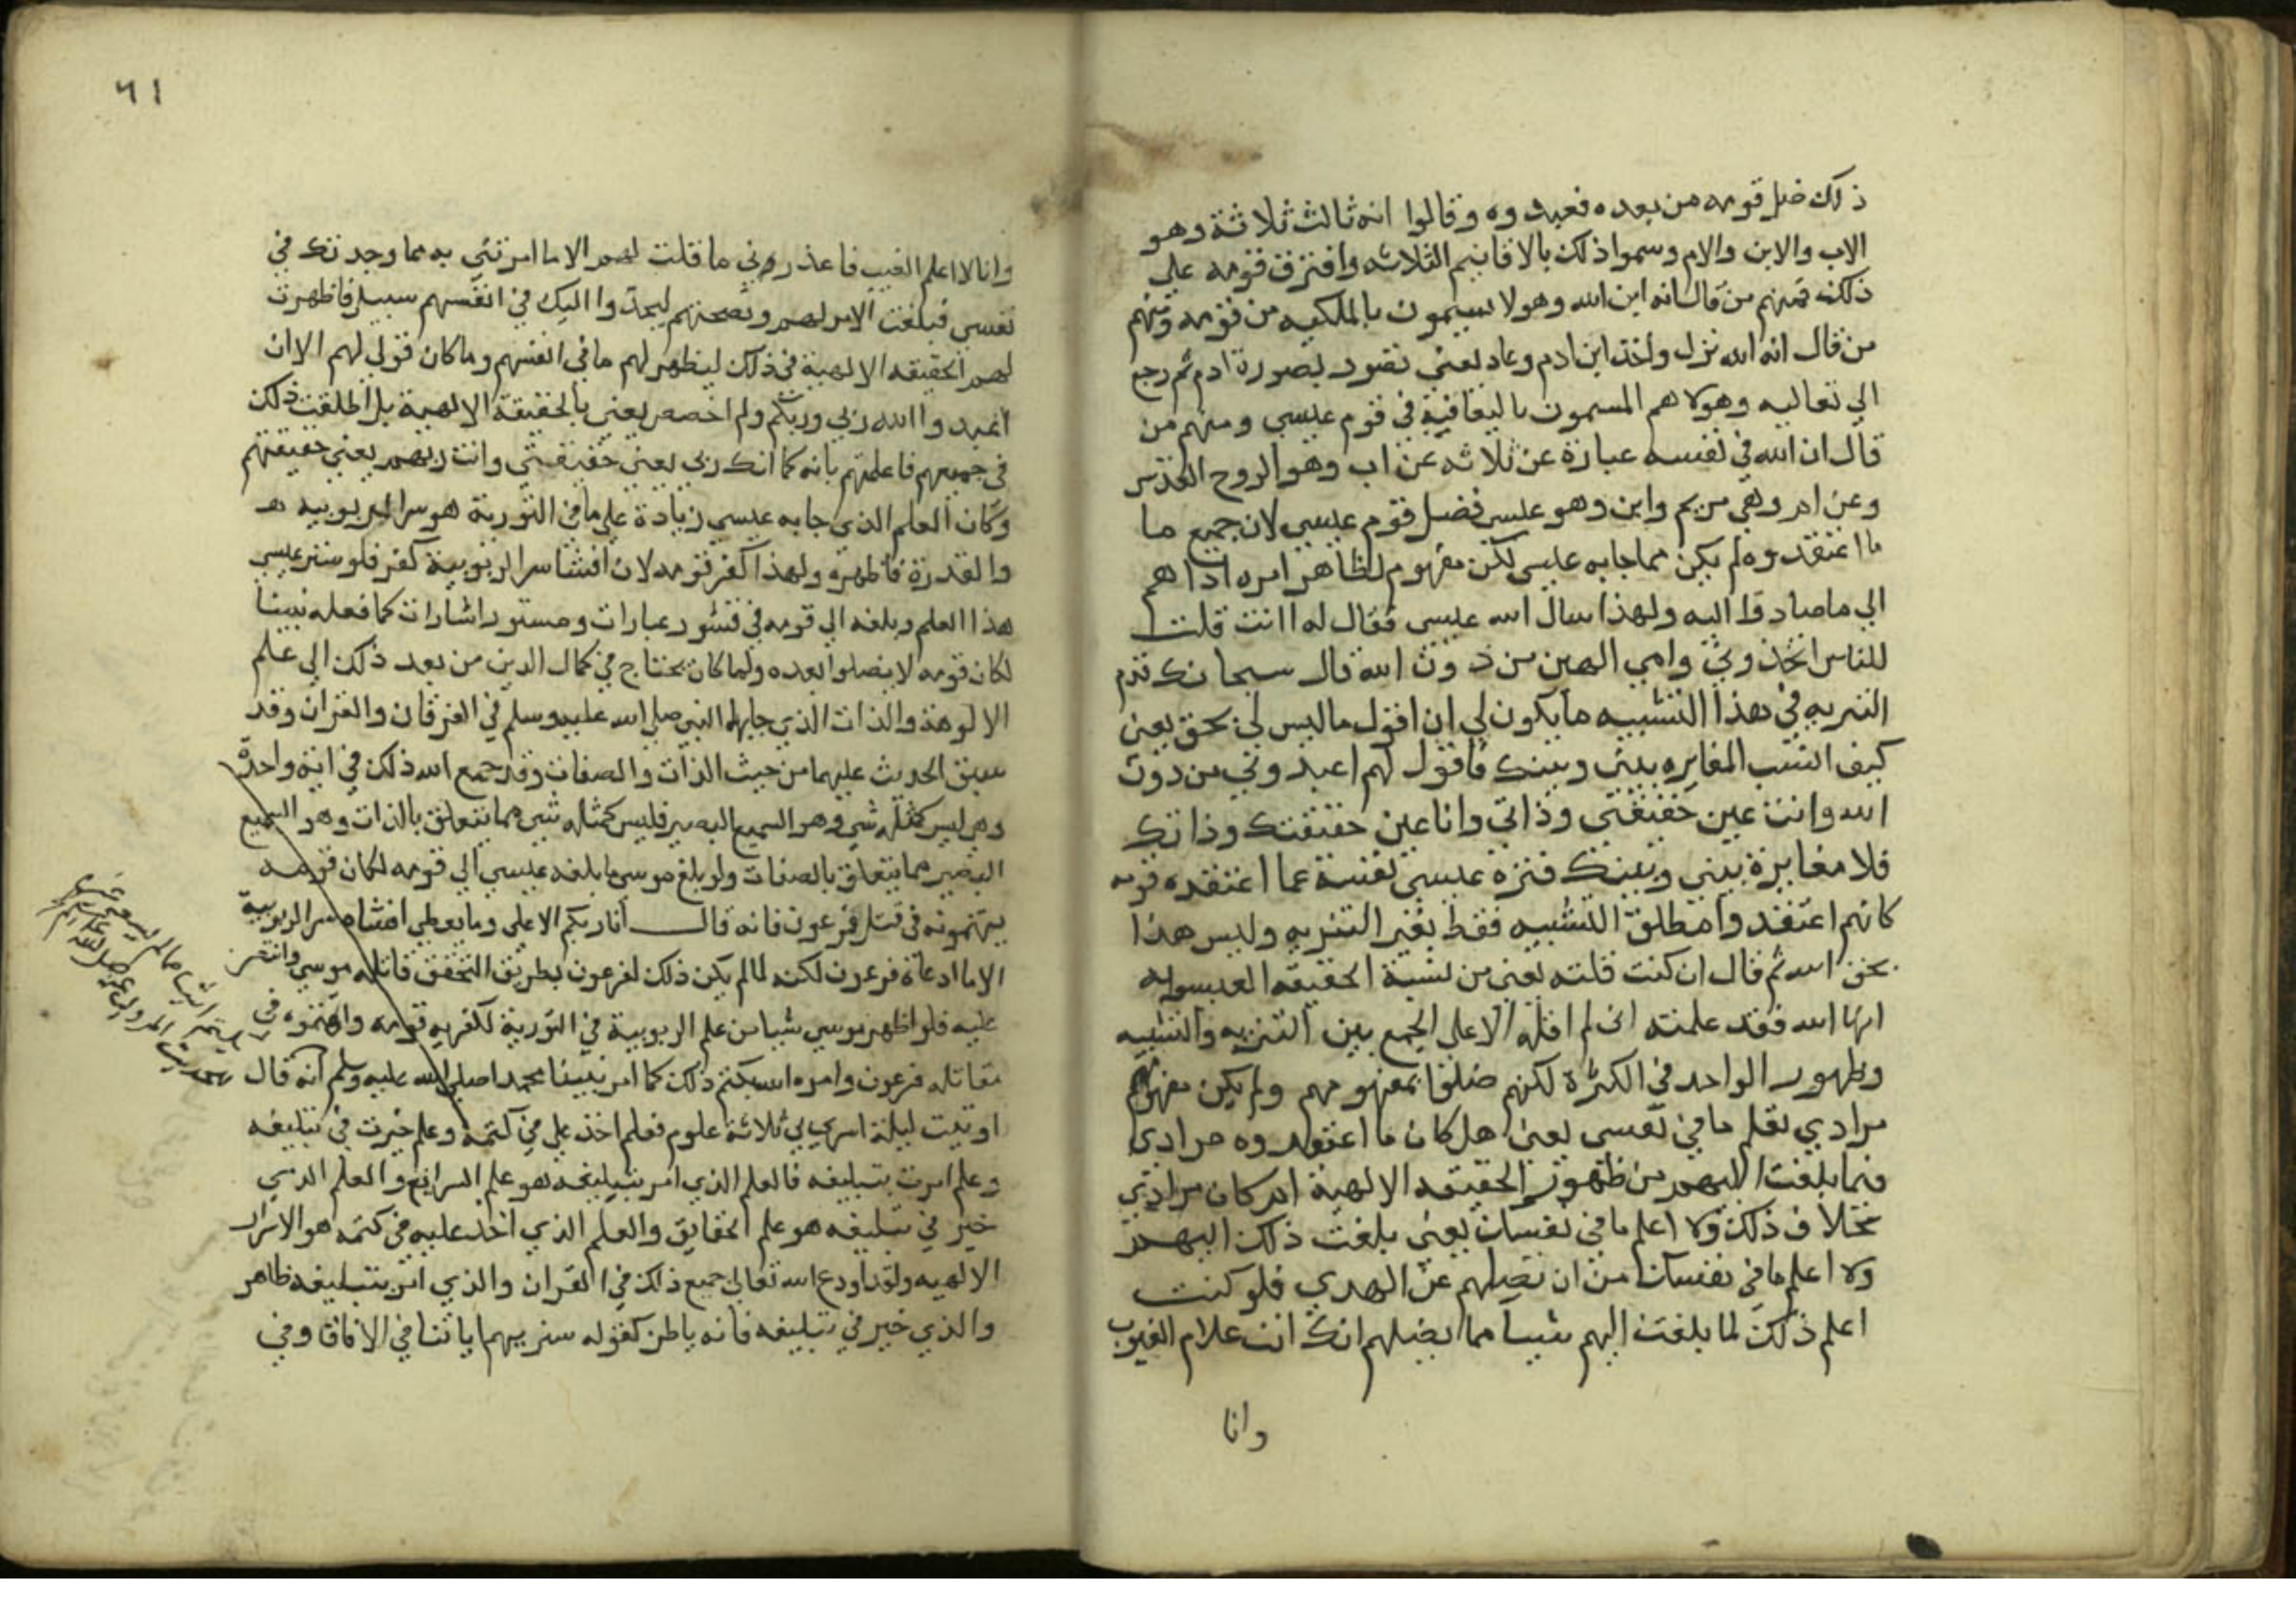 ذلك ضل قومه من بعده فعبدوه وقالوا انه ثالث ثلاثة وهو
الاب والابن والام وسموا ذلك بالاقانيم الثلاثه وافترق قومه على
ذلك فمنهم من قال انه ابن الله وهولا يسمون بالملكيه من قومه ومنهم
من قال انه الله نزل واخذ ابن ادم وعاد يعني تصور بصورة ادم ثم رجع
الي تعاليه وهولا هم المسمون باليعاقبة في قوم عيسي ومنهم من
قال ان الله في نفسه عبارة عن ثلاثه عن اب وهو الروح القدس
وعن ام وهي مريم وابن وهو عيسى فضل قوم عيسي لان جميع ما
ما اعتقدوه لم يكن مما جا به عيسي لكن مفهوم لظاهر امره اداهم
الي ما صاروا اليه ولهذا سال الله عيسى فقال له اانت قلت
للناس اتخذوني وامي الهين من دون الله قال سبحانك قدم
التنزيه في هذا التشبيه ما يكون لي ان اقول ما ليس لي بحق يعني
كيف انسب المغايره بيني وبينك فاقول لهم اعبدوني من دون
الله وانت عين حقيقتي وذاتي وانا عين حقيقتك وذاتك
فلا مغايرة بيني وبينك فنزه عيسى نفسه عما اعتقده قومه
كانهم اعتقدوا مطلق التشبيه فقط بغير التنزيه وليس هذا
بحق الله ثم قال ان كنت قلته يعني من نسبة الحقيقه العيسويه
انها الله فقد علمته اني لم اقله الا على الجمع بين التنزيه والتشبيه
وظهور الواحد في الكثرة لكنهم ضلوا بمفهومهم ولم يكن مفهومهم
مرادي تعلم ما في نفسى يعني هل كان ما اعتقدوه مرادي
فيما بلغت اليهم من ظهور الحقيقه الالهية ام كان مرادي
بخلاف ذلك ولا اعلم ما في نفسك يعني بلغت ذلك اليهم
ولا اعلم ما في نفسك من ان تضلهم عن الهدي فلو كنت
اعلم ذلك لما بلغت اليهم شيا مما يضلهم انك انت علام الغيوب
وانا
٦١
وانا لا اعلم الغيب فاعذروني ما قلت لهم الا ما امرتني به مما وجدتك في
نفسي فبلغت الامر لهم ونصحتهم ليجدوا اليك في انفسهم سبيلا فاظهرت
لهم الحقيقه الالهية في ذلك ليظهر لهم ما في انفسهم وما كان قولي لهم الا ان
اعبدوا الله ربي وربكم ولم اخصص يعني بالحقيقة الالهية بل اطلقت ذلك
في جميعهم فاعلمتهم بانه كما انك ربي يعني حقيقتي وانت ربهم يعني حقيقتهم
وكان العلم الذي جا به عيسي زيادة على ما في التورية هو سر الربوبيه
والقدرة فاظهره ولهذا كفر قومه لان افشا سر الربوبية كفر فلو ستر عيسي
هذا العلم وبلغه الي قومه في قشور عبارات ومستور اشارات كما فعله نبينا
لكان قومه لا يضلوا بعده ولما كان يحتاج في كمال الدين من بعد ذلك الي علم
الالوهة والذات الذي جا بهما النبي صلى الله عليه وسلم في الفرقان والقران وقد
سبق الحديث عليهما من حيث الذات والصفات وقد جمع الله ذلك في اية واحدة
وهي ليس كمثله شي وهو السميع البصير فليس كمثله شي مما يتعلق بالذات وهو السميع
البصير مما يتعلق بالصفات ولو بلغ موسي ما بلغه عيسي الي قومه لكان قومه
يتهمونه في قتل فرعون فانه قال انا ربكم الاعلي وما يعطي افشاه سر الربوبية
الا ما ادعاه فرعون لكنه لما لم يكن ذلك لفرعون بطريق التحقق قاتله موسي وانتصر
عليه فلو اظهر موسي شيا من علم الربوبية في التورية لكفر به قومه واتهموه في
مقاتلة فرعون وامره الله بكتم ذلك كما امر نبينا محمدا صلى الله عليه وسلم انه قال
اوتيت ليلة اسري بي ثلاثة علوم فعلم اخذ علي في كتمه وعلم خيرت في تبليغه
وعلم امرت بتبليغه فالعلم الذي امر بتبليغه هو علم الشرايع والعلم الذي
خير في تبليغه هو علم الحقايق والعلم الذي اخذ عليه في كتمه هو الاسرار
الالهيه ولقد اودع الله تعالي جميع ذلك في القران والذي امر بتبليغه ظاهر
والذي خير في تبليغه فانه باطن كقوله سنريهم اياتنا في الافاق وفي